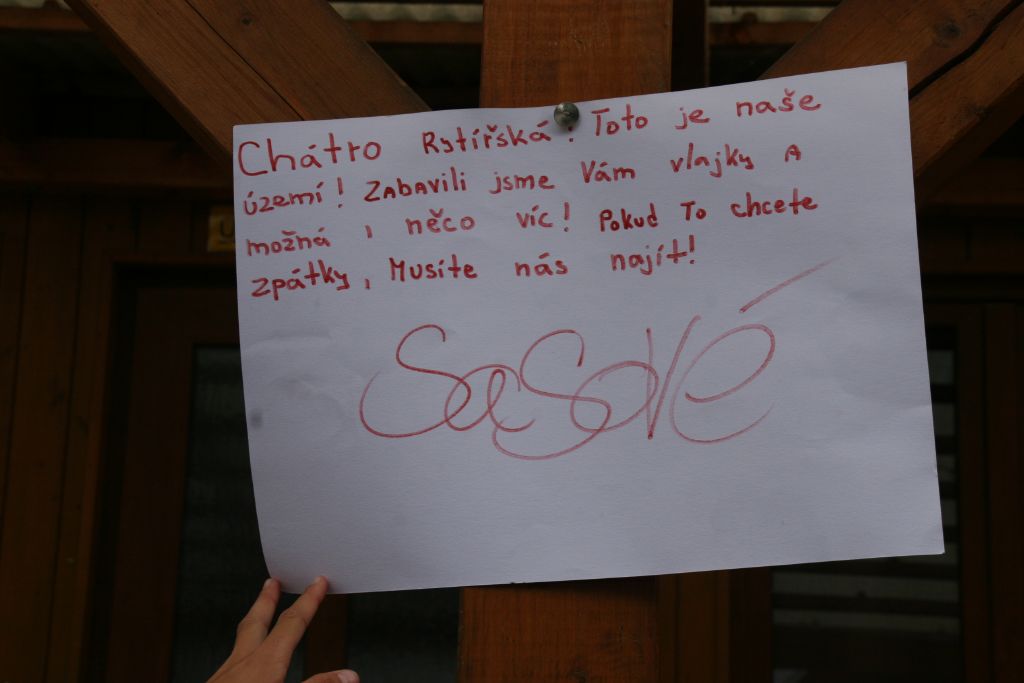 Chátro Rytířská! Toto je naše
území! Zabavili jsme Vám vlajky a
možná i něco víc! Pokud To chcete
zpátky, Musíte nás najít!
Sasové